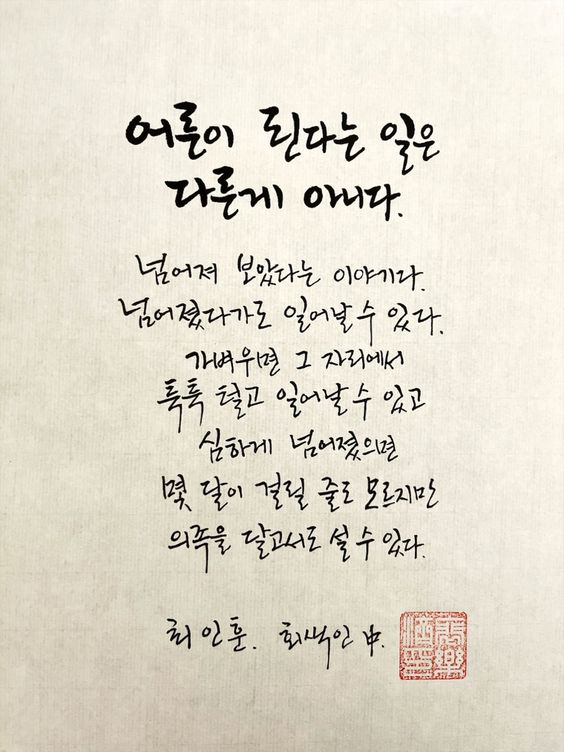 어른이 된다는 일은
다른게 아니다.
넘어져 보았다는 이야기다.
넘어졌다가도 일어날 수 있다.
가벼우면 그 자리에서
툭툭 털고 일어날 수 있고
심하게 넘어졌으면
몇 달이 걸릴 줄도 모르지만
의족을 달고서도 설 수 있다.
최인훈. 회색인 中.